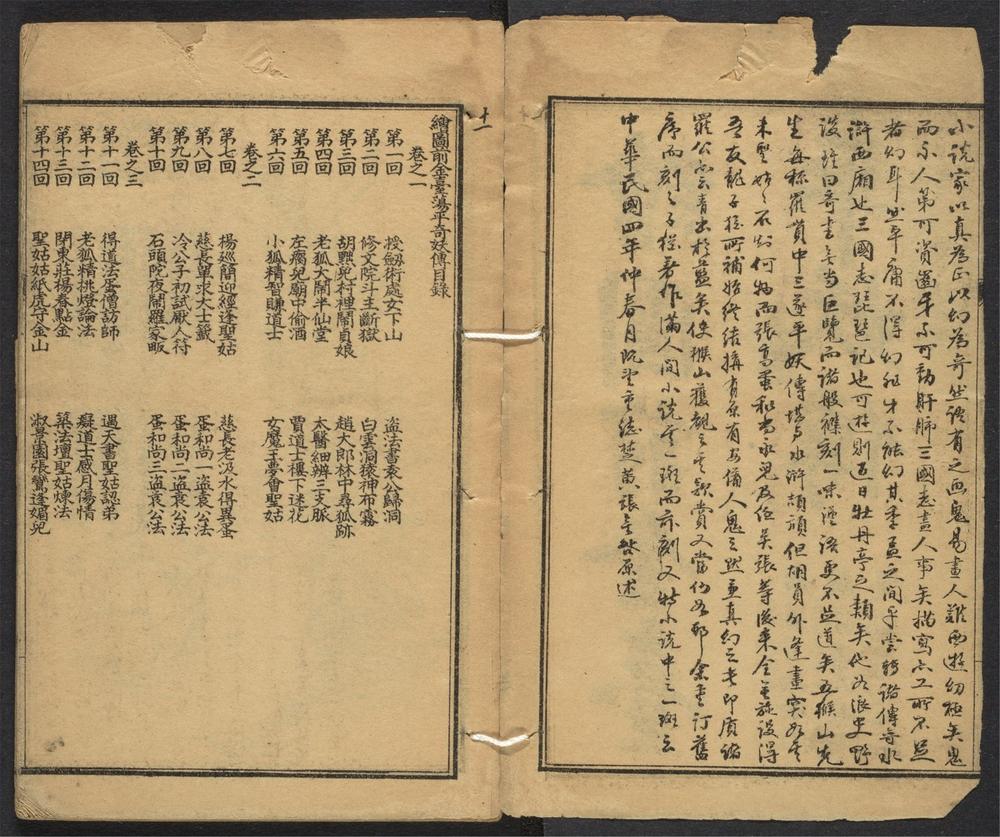 小說家以真為正以幻為奇然語有之畫鬼易畫人難西遊幻極矣鬼
而不人第可資齒牙不可動肝肺三國志盡人事矣描寫亦工所不足
者幻耳然平庸不得幻祗才不能幻其季孟之間乎嘗辟諸傳奇水
滸西廂也三國志琵琶記也西遊則近日牡丹亭之類矣他如浪史野
談班曰奇書無當巨覽而諸般雜刻一味淫語更不足道矣吾猴山先
生每稱羅貫中三遂平妖傳堪與水滸頡頏但胡員外逢畫突如其
來聖姑姑不知何物而張鸞蛋和尚永兒及任吳張等後來全無施設得
吾友龍子猶所補始終結構有原有委備人鬼之態兼真幻之長即質諸
羅公亦云青出於藍矣使猴山獲覩之其歎賞又當何如邪余重訂舊
序而刻之子猶著作滿人間小說其一斑而茲刻又特小說中之一斑云
中華民國四年仲春月既望重識楚黃張無咎原述
十一
繪圖前金臺蕩平奇妖傳目錄
卷之一
第一回 授劔術處女下山 盜法書袁公歸洞
第二回 修文院斗主斷獄 白雲洞猿神布霧
第三回 胡黜兒村裡鬧貞娘 趙大郎林中尋狐跡
第四回 老狐大鬧半仙堂 太醫細辨三支脈
第五回 左瘸兒廟中偷酒 賈道士樓下迷花
第六回 小狐精智賺道士 女魔王夢會聖姑
卷之二
第七回 楊巡簡迎經逢聖姑 慈長老汲水得異蛋
第八回 慈長單求大士籤 蛋和尚一盜袁公法
第九回 冷公子初試厭人符 蛋和尚二盜袁公法
第十回 石頭陀夜鬧羅家畈 蛋和尚三盜袁公法
卷之三
第十一回 得道法蛋僧訪師 遇天書聖姑認弟
第十二回 老狐精挑燈論法 癡道士感月傷情
第十三回 閉東莊楊春點金 築法壇聖姑煉法
第十四回 聖姑姑紙虎守金山 淑景園張鸞逢媚兒